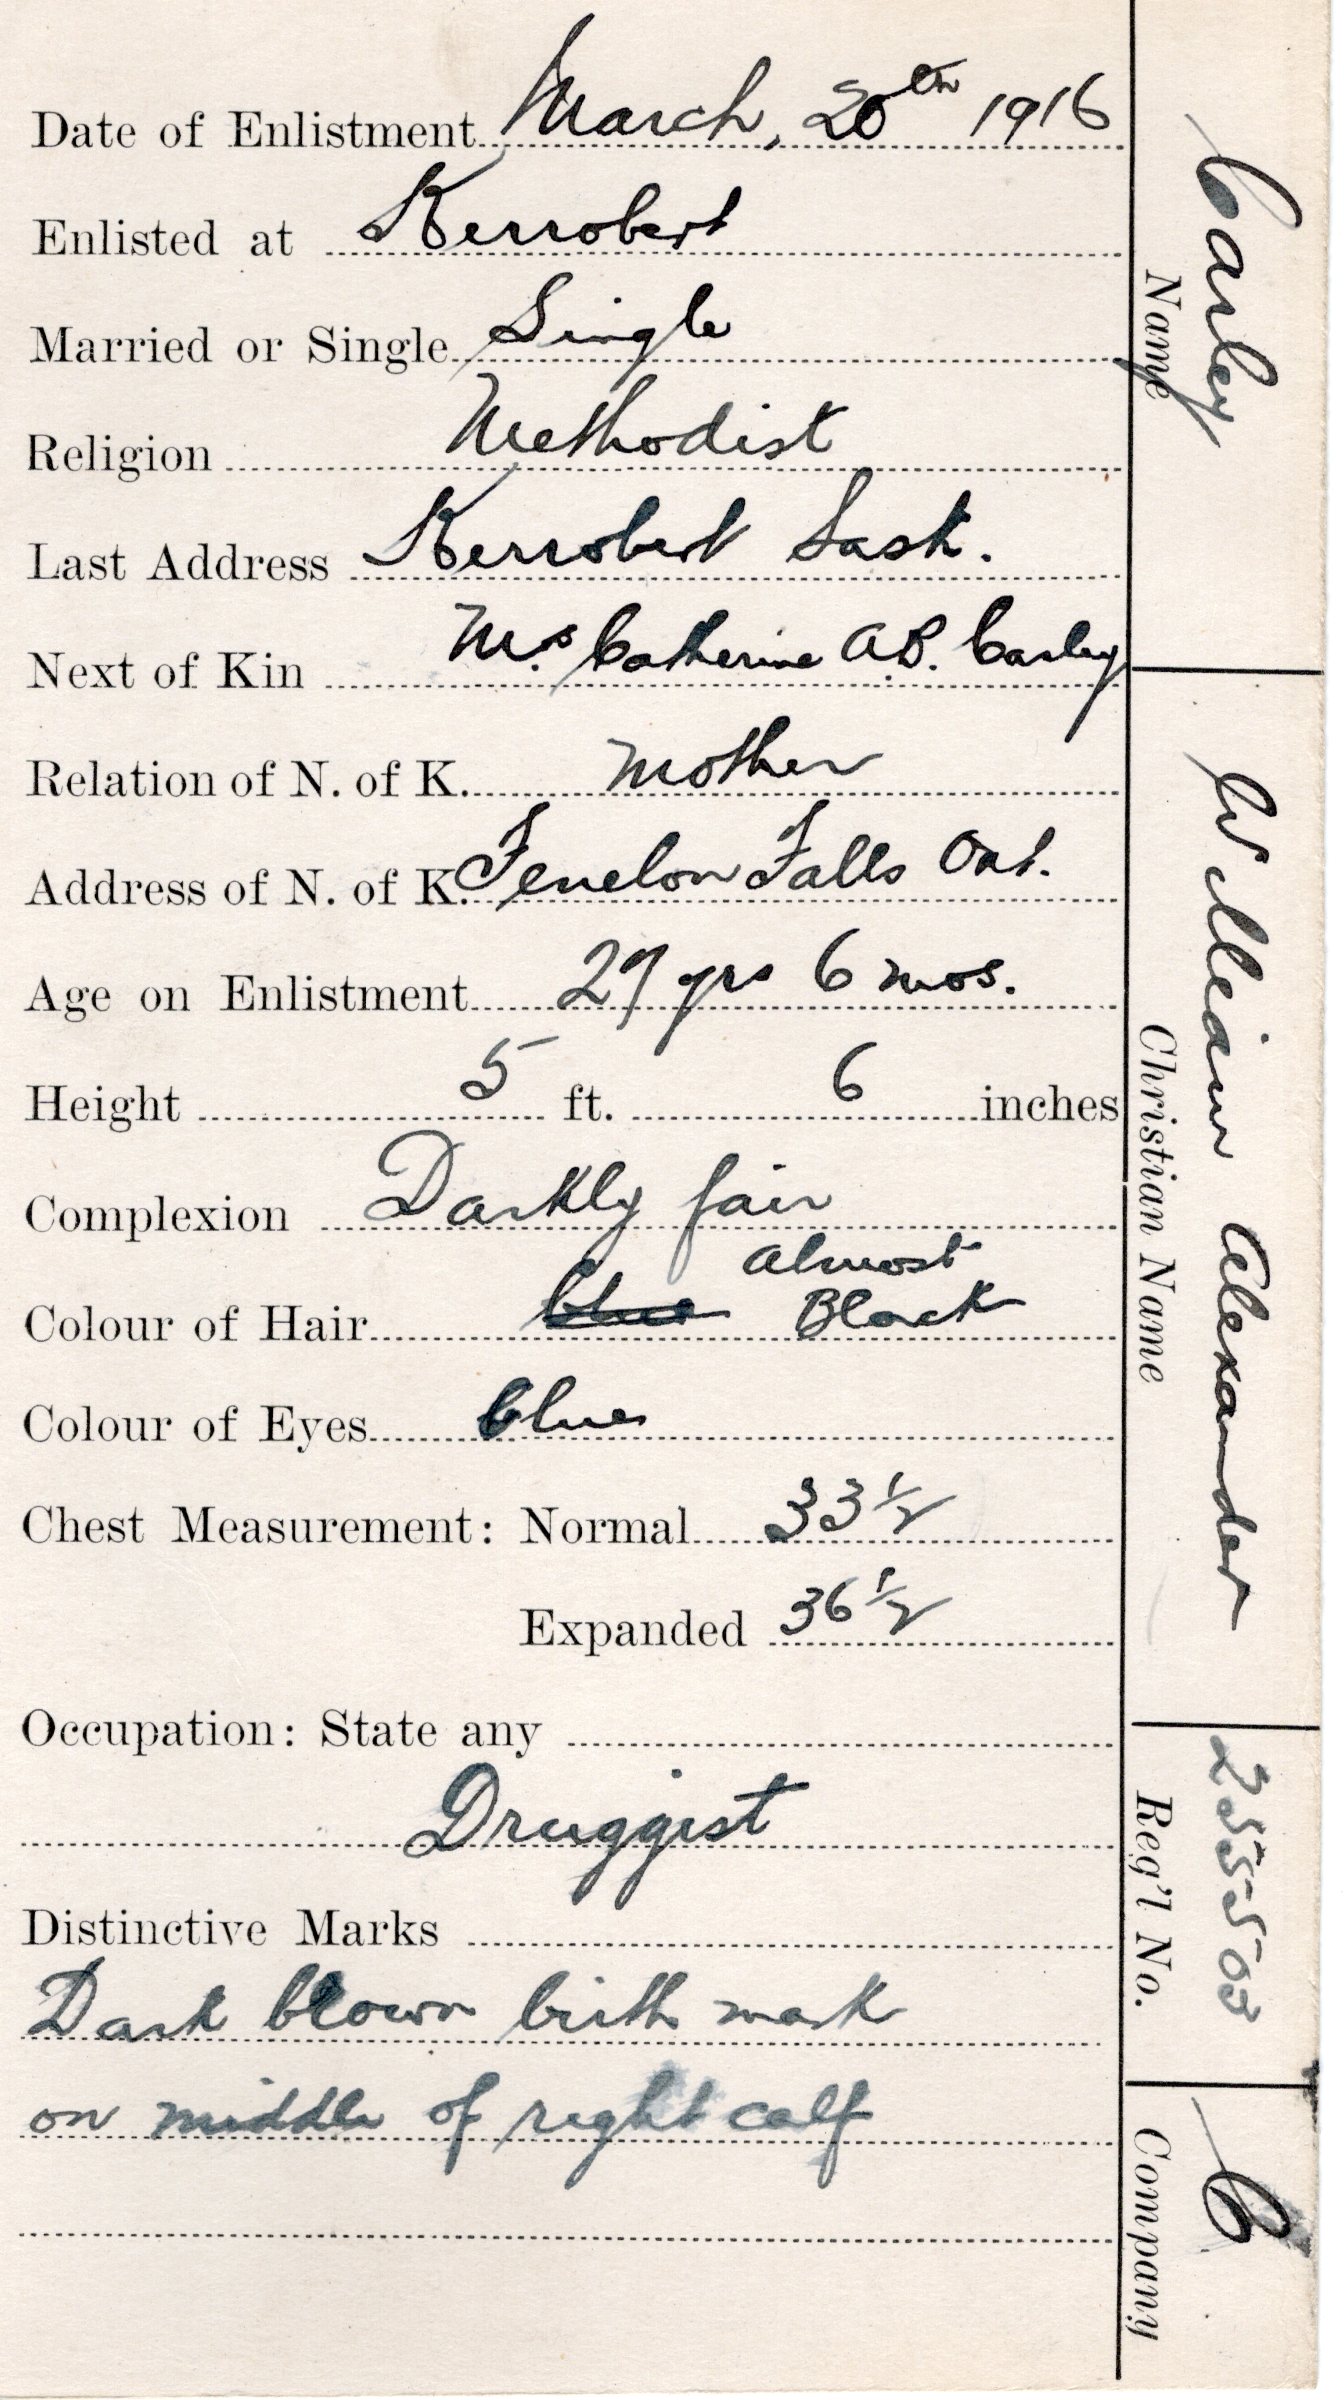 Date of Enlistment March, 20th 1916
Enlisted at Kerrobert
Married or Single Single
Religion Methodist
Last Address Kerrobert Sask.
Next of Kin Mrs Catherine A.B. Carley
Relation of N. of K. mother
Address of N. of K. Fenelon Falls Ont.
Age on Enlistment 27 yrs 6 mos.
Height 5 ft. 6 inches
Complexion Darkly fair
almost
Colour of Hair blue Black
Colour of Eyes blue
Chest Measurement: Normal 33 1/2
Expanded 36 1/2
Occupation: State any
Druggist
Distinctive Marks
Dark brown birth mark
on middle of right calf
Carley
Name
William Alexander
Christian Name
255503
Reg'l No.
C
Company